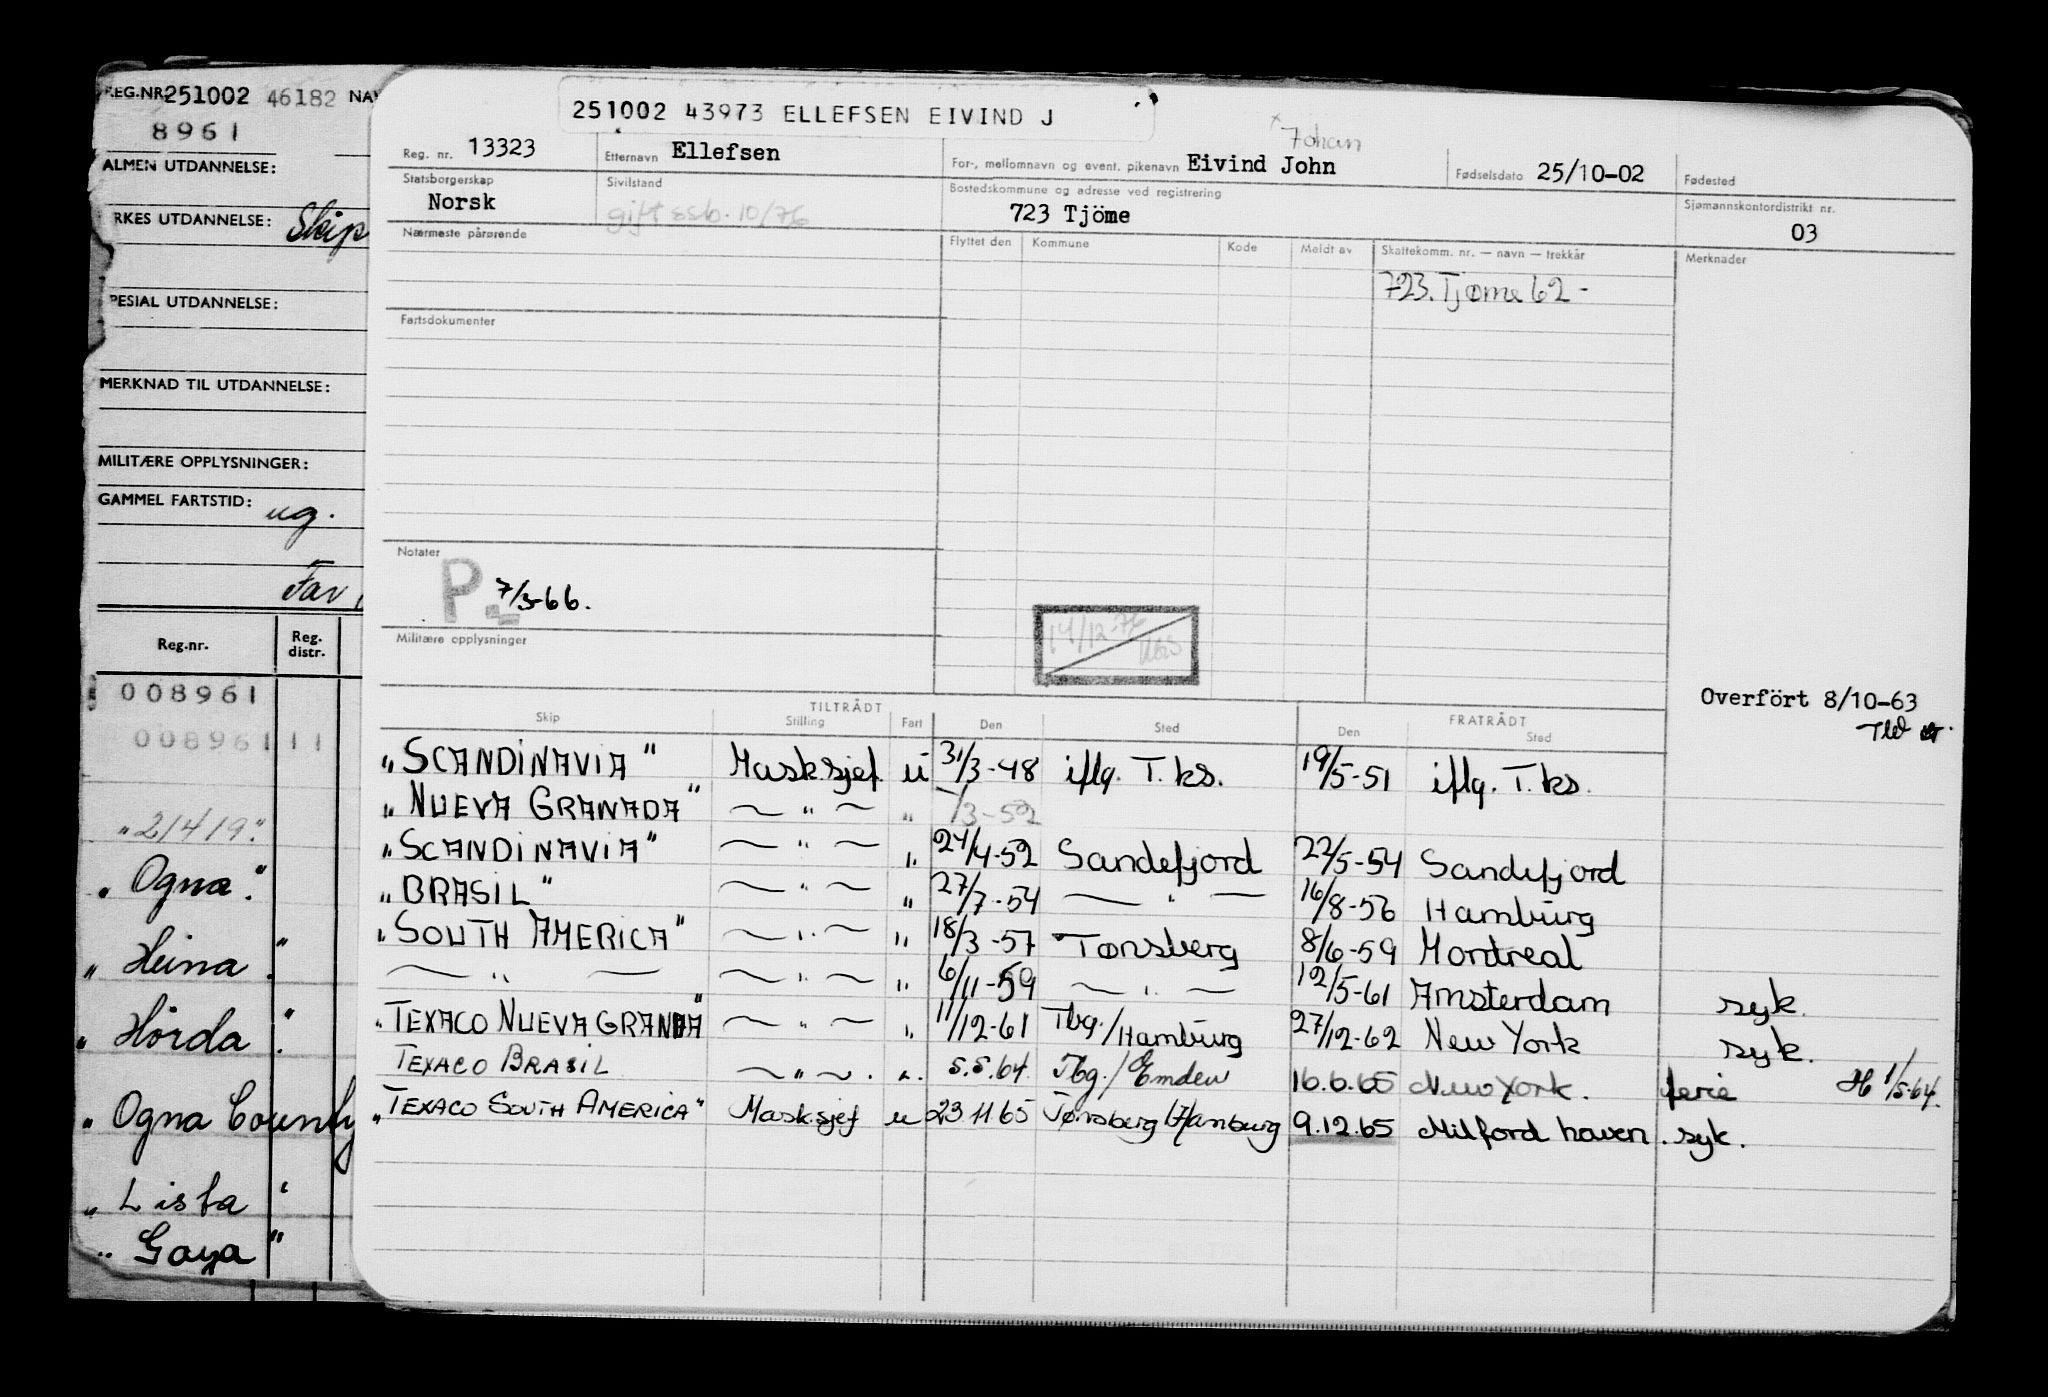 REG.NR. 251002 46182 NAV
8961
ALMEN UTDANNELSE:
RKES UTDANNELSE: Skip
PESIAL UTDANNELSE:
MERKNAD TIL UTDANNELSE:
MILITÆRE OPPLYSNINGER:
GAMMEL FARTSTID: ug.
Far
Reg.nr. Reg. distr.
008961
008961 11
"21419"
"Ogna"
"Heina"
"Hörda"
"Ogna County
"Lista"
"Goya"
251002 43973 ELLEFSEN EIVIND J
x Johan
Reg. nr. 13323 Etternavn Ellefsen For-, mellomnavn og event. pikenavn Eivind John Fødselsdato 25/10-02 Fødested
Statsborgerskap Norsk Sivilstand gift ssb. 10/76 Bostedskommune og adresse ved registrering 723 Tjöme Sjømannskontordistrikt nr. 03
Nærmeste pårørende Flyttet den Kommune Kode Meldt av Skattekomm. nr. — navn — trekkår Merknader
723. Tjøme 62 -
Fartsdokumenter
Notater
P 7/3-66.
14/12-76
Militære opplysninger
Overfört 8/10-63
TILTRÅDT FRATRÅDT
Skip Stilling Fart Den Sted Den Sted
"SCANDINAVIA" Masksjef ü 31/3-48 iflg. T.ks. 19/5-51 iflg. T.ks.
"NUEVA GRANADA" — " — " /3-52
"SCANDINAVIA" — " — " 24/4-52 Sandefjord 22/5-54 Sandefjord
"BRASIL" — " — " 27/7-54 — " — 16/8-56 Hamburg
"SOUTH AMERICA" — " — " 18/3-57 Tønsberg 8/6-59 Montreal
— " — — " — " 6/11-59 — " — 12/5-61 Amsterdam syk.
"TEXACO NUEVA GRANADA" — " — " 11/12-61 Tbg./Hamburg 27/12-62 New York syk.
TEXACO BRASIL — " — . " 5.5.64 Tbg./Emden 16.6.65 New York. ferie H 1/5-64.
"TEXACO SOUTH AMERICA" Masksjef u 23.11.65 Tønsberg/Hamburg 9.12.65 Milford haven. syk.